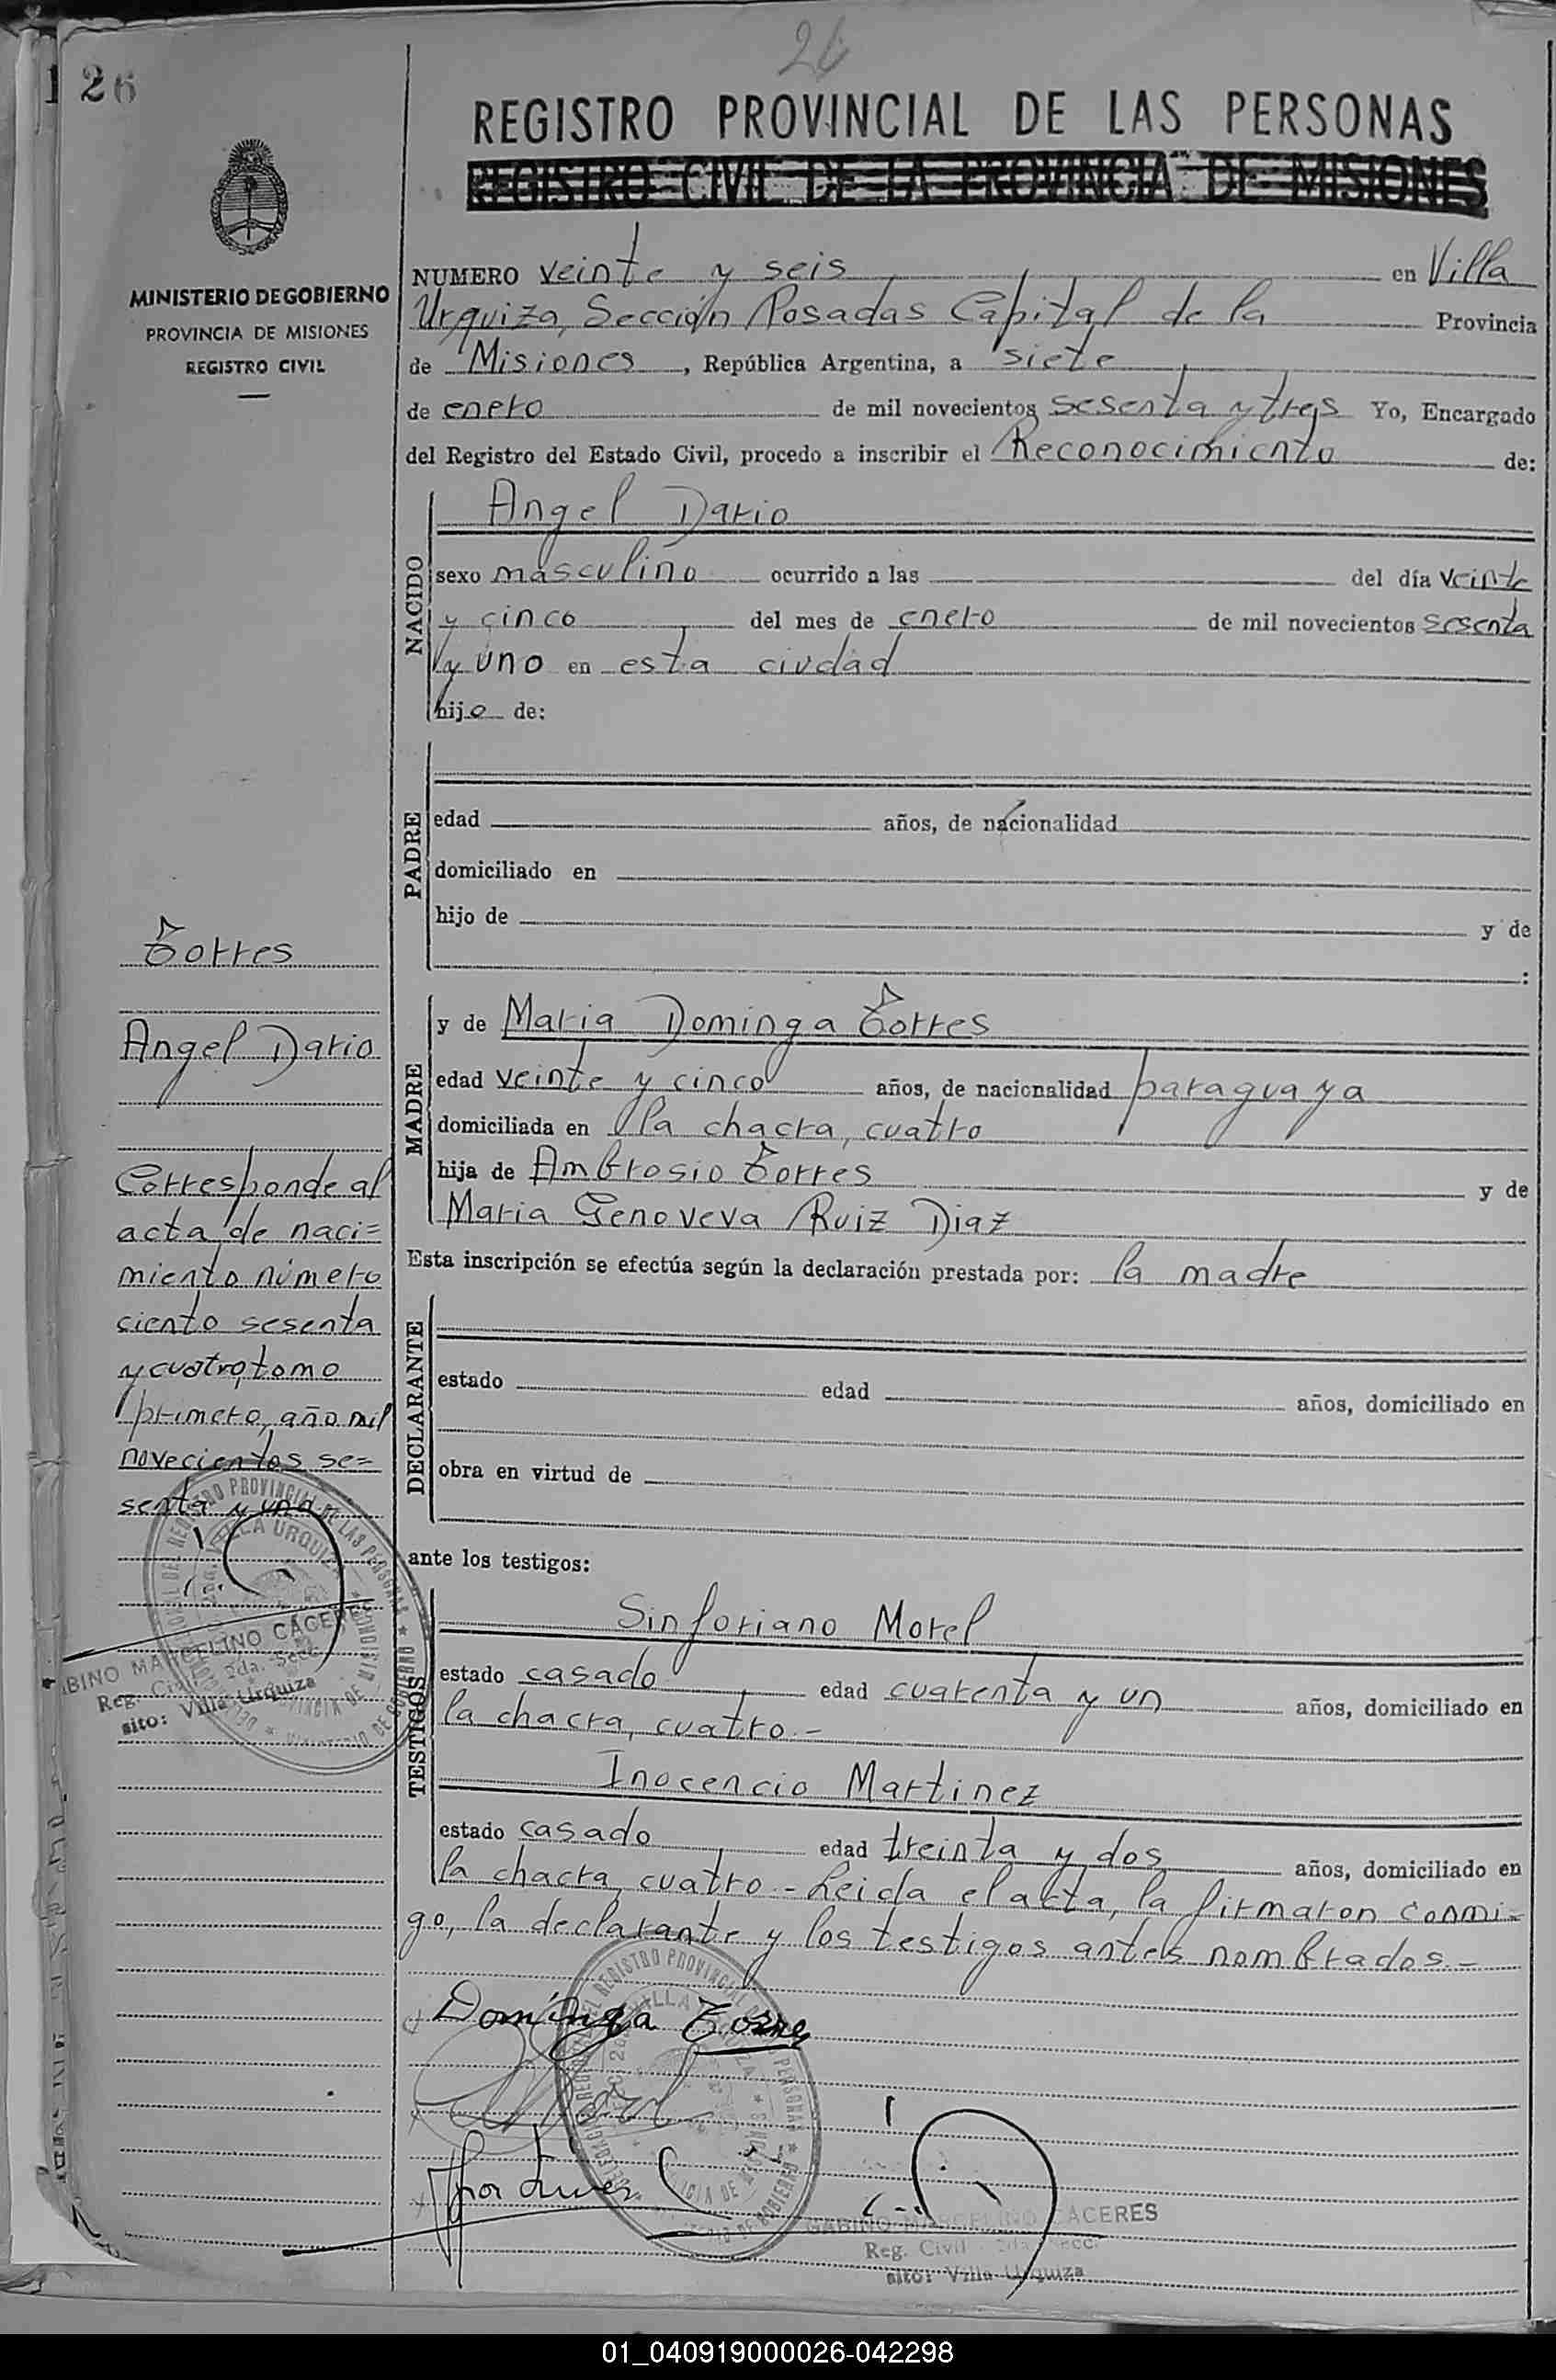 26
126
REGISTRO PROVINCIAL DE LAS PERSONAS
REGISTRO CIVIL DE LA PROVINCIA DE MISIONES
MINISTERIO DE GOBIERNO
PROVINCIA DE MISIONES
REGISTRO CIVIL
NUMERO veinte y seis en Villa
Urquiza, Sección Posadas Capital de la Provincia
de Misiones, República Argentina, a siete
de enero de mil novecientos sesenta y tres Yo, Encargado
del Registro del Estado Civil, procedo a inscribir el Reconocimiento de:
NACIDO
Angel Dario
sexo masculino ocurrido a las del día veinte
y cinco del mes de enero de mil novecientos sesenta
y uno en esta ciudad
hijo de:
PADRE
edad años, de nacionalidad
domiciliado en
hijo de y de
:
Torres
Angel Dario
Corresponde al
acta de naci=
miento número
ciento sesenta
y cuatro, tomo
primero, año mil
novecientos se=
senta y uno
MADRE
y de Maria Dominga Torres
edad veinte y cinco años, de nacionalidad paraguaya
domiciliada en la chacra, cuatro
hija de Ambrosio Torres y de
Maria Genoveva Ruiz Diaz
Esta inscripción se efectúa según la declaración prestada por: la madre
DECLARANTE
estado edad años, domiciliado en
obra en virtud de
ante los testigos:
TESTIGOS
Sinforiano Morel
estado casado edad cuarenta y un años, domiciliado en
la chacra, cuatro.-
Inocencio Martinez
estado casado edad treinta y dos años, domiciliado en
la chacra, cuatro.- Leida el acta, la firmaron conmi-
go, la declarante y los testigos antes nombrados.-
Dominga Torres
GABINO MARCELINO CACERES
Reg. Civil 2da. Secc.
sito: Villa Urquiza
BINO MARCELINO CACERES
Reg. Civil 2da. Secc.
sito: Villa Urquiza
01_040919000026-042298